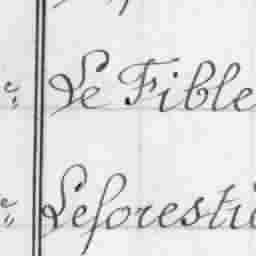 Le Fible
Leforestie